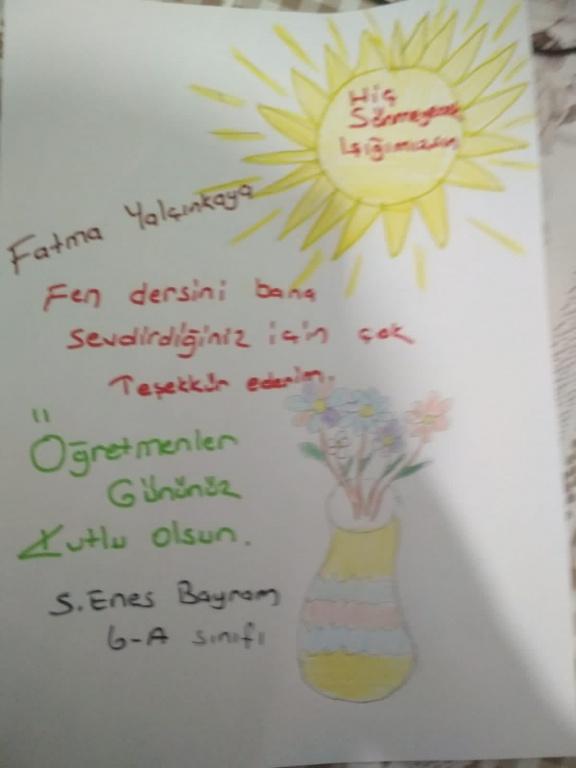 Hiç
Sönmeyecek
Işığımızsın
Fatma Yalçınkaya
Fen dersini bana
sevdirdiğiniz için çok
Teşekkür ederim.
Öğretmenler
Gününüz
Kutlu olsun.
S. Enes Bayram
6-A sınıfı